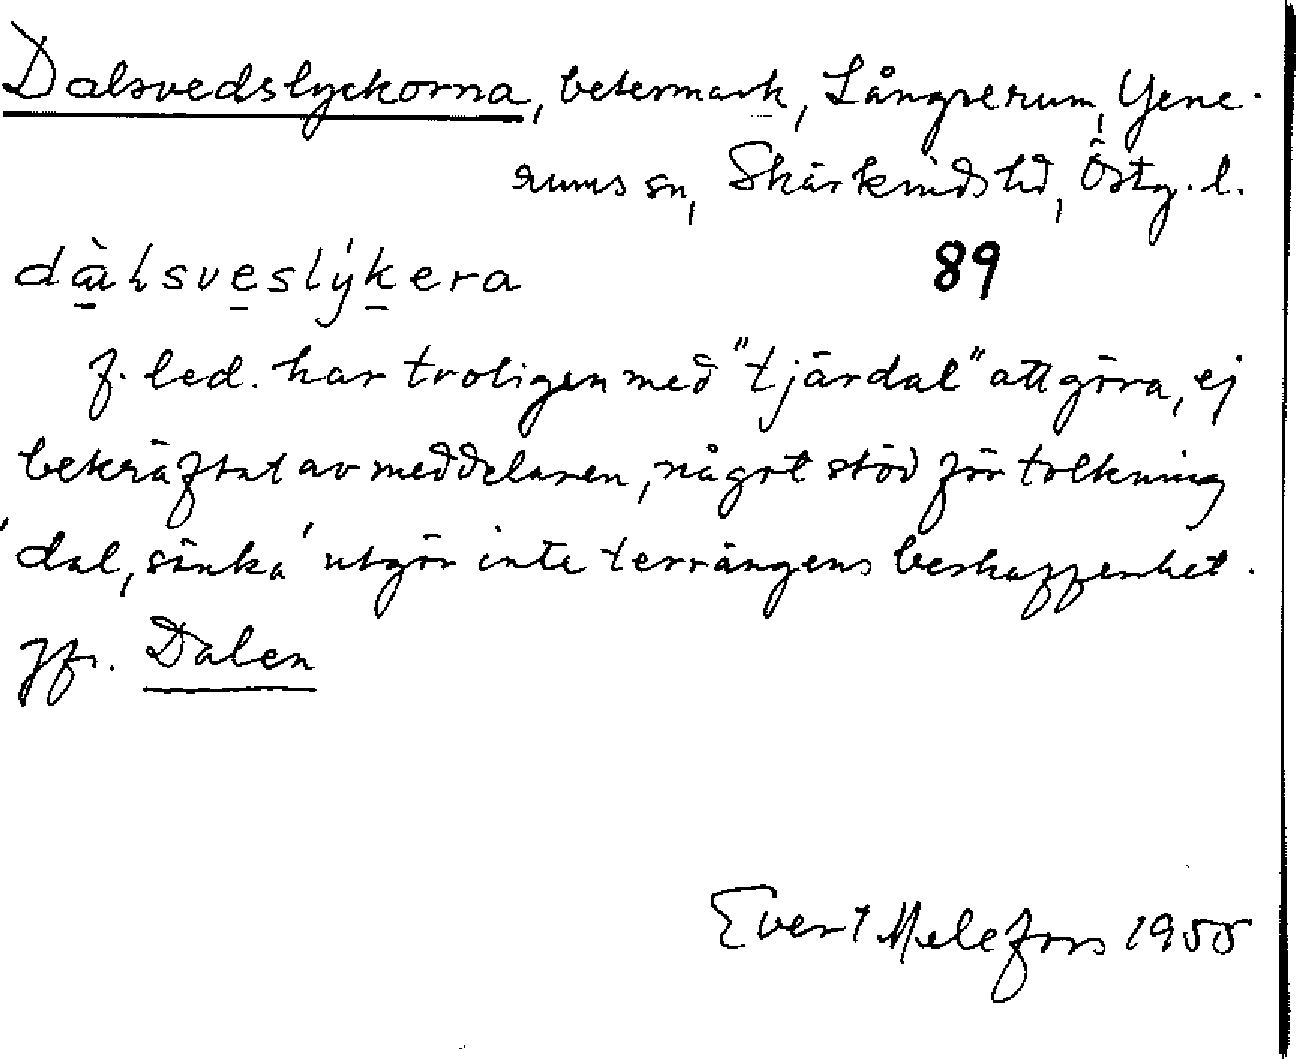 Dalsvedslyckorna, betesmark, Långserum, Yxne-
rums sn, Skärkinds hd, Östg. l.
dàlsveslýkera 89
f. led. har troligen med "tjärdal" att göra, ej
bekräftat av meddelaren, något stöd för tolkning
'dal, sänka' utgör inte terrängens beskaffenhet.
Jfr. Dalen
Evert Melefors 1955